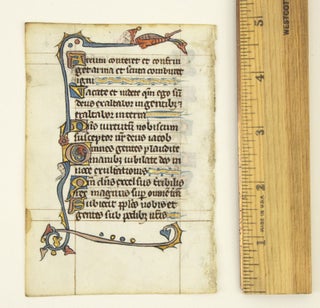 Arcum conteret et confrin
get arma et scuta comburet
igni
Uacate et uidete qm ego su
deus exaltabor in gentibz
exaltabor in terra
Dns uirtutum nobiscum
susceptor nr deus iacob
Omnes gentes plaudite
manibz iubilate deo in
uoce exultationis
Qm dns excelsus tribilis
rex magnus sup omnē trām
Subiecit pplos nobis et
gentes sub pedibz nris
WESTCOTT
5
4
3
2
1
MADE IN U.S.A.